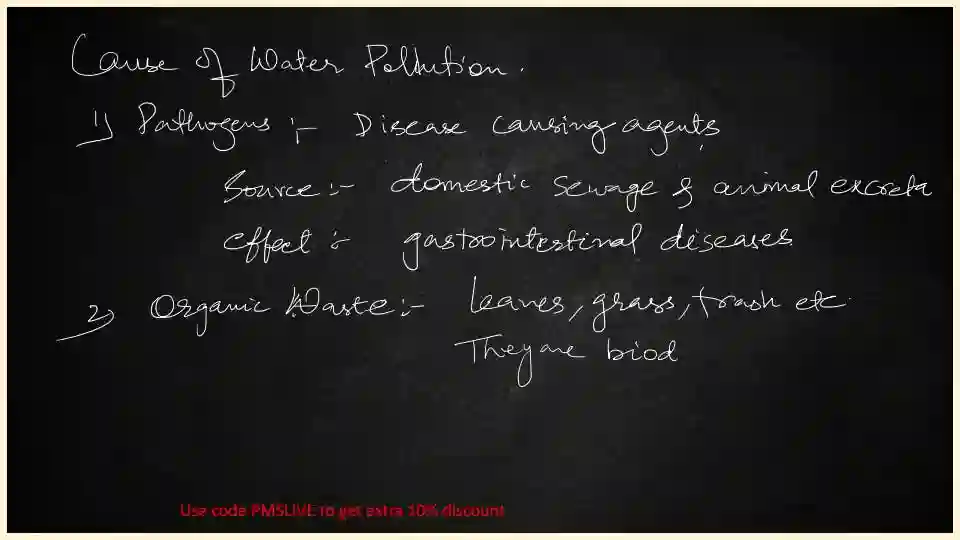 Cause of Water Pollution.
1) Pathogens :- Disease causing agents
Source :- domestic sewage & animal excreta
effect :- gastrointestinal diseases
2) Organic Waste :- leaves, grass, trash etc.
They are biod
Use code PMSLIVE to get extra 10% discount